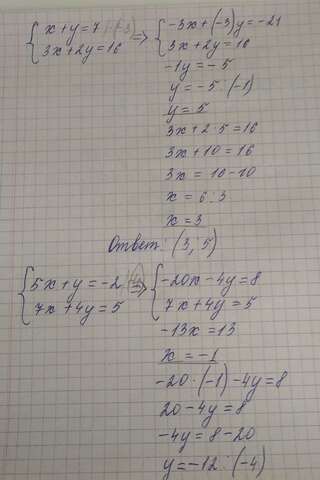 {x+y=7 |·(-3) => {-3x+(-3)y=-21
{3x+2y=16 {3x+2y=16
-1y=-5
y=-5:(-1)
y=5
3x+2·5=16
3x+10=16
3x=16-10
x=6:3
x=3
Ответ: (3; 5)
{5x+y=-2 => {-20x-4y=8
{7x+4y=5 {7x+4y=5
-13x=13
x=-1
-20·(-1)-4y=8
20-4y=8
-4y=8-20
y=-12:(-4)